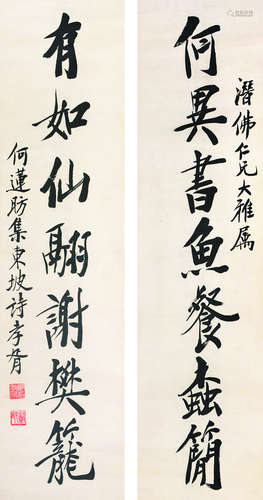 潛佛仁兄大雅属
何異書魚餐螙簡
有如仙翮謝樊籠
何蓮舫集東坡詩孝胥